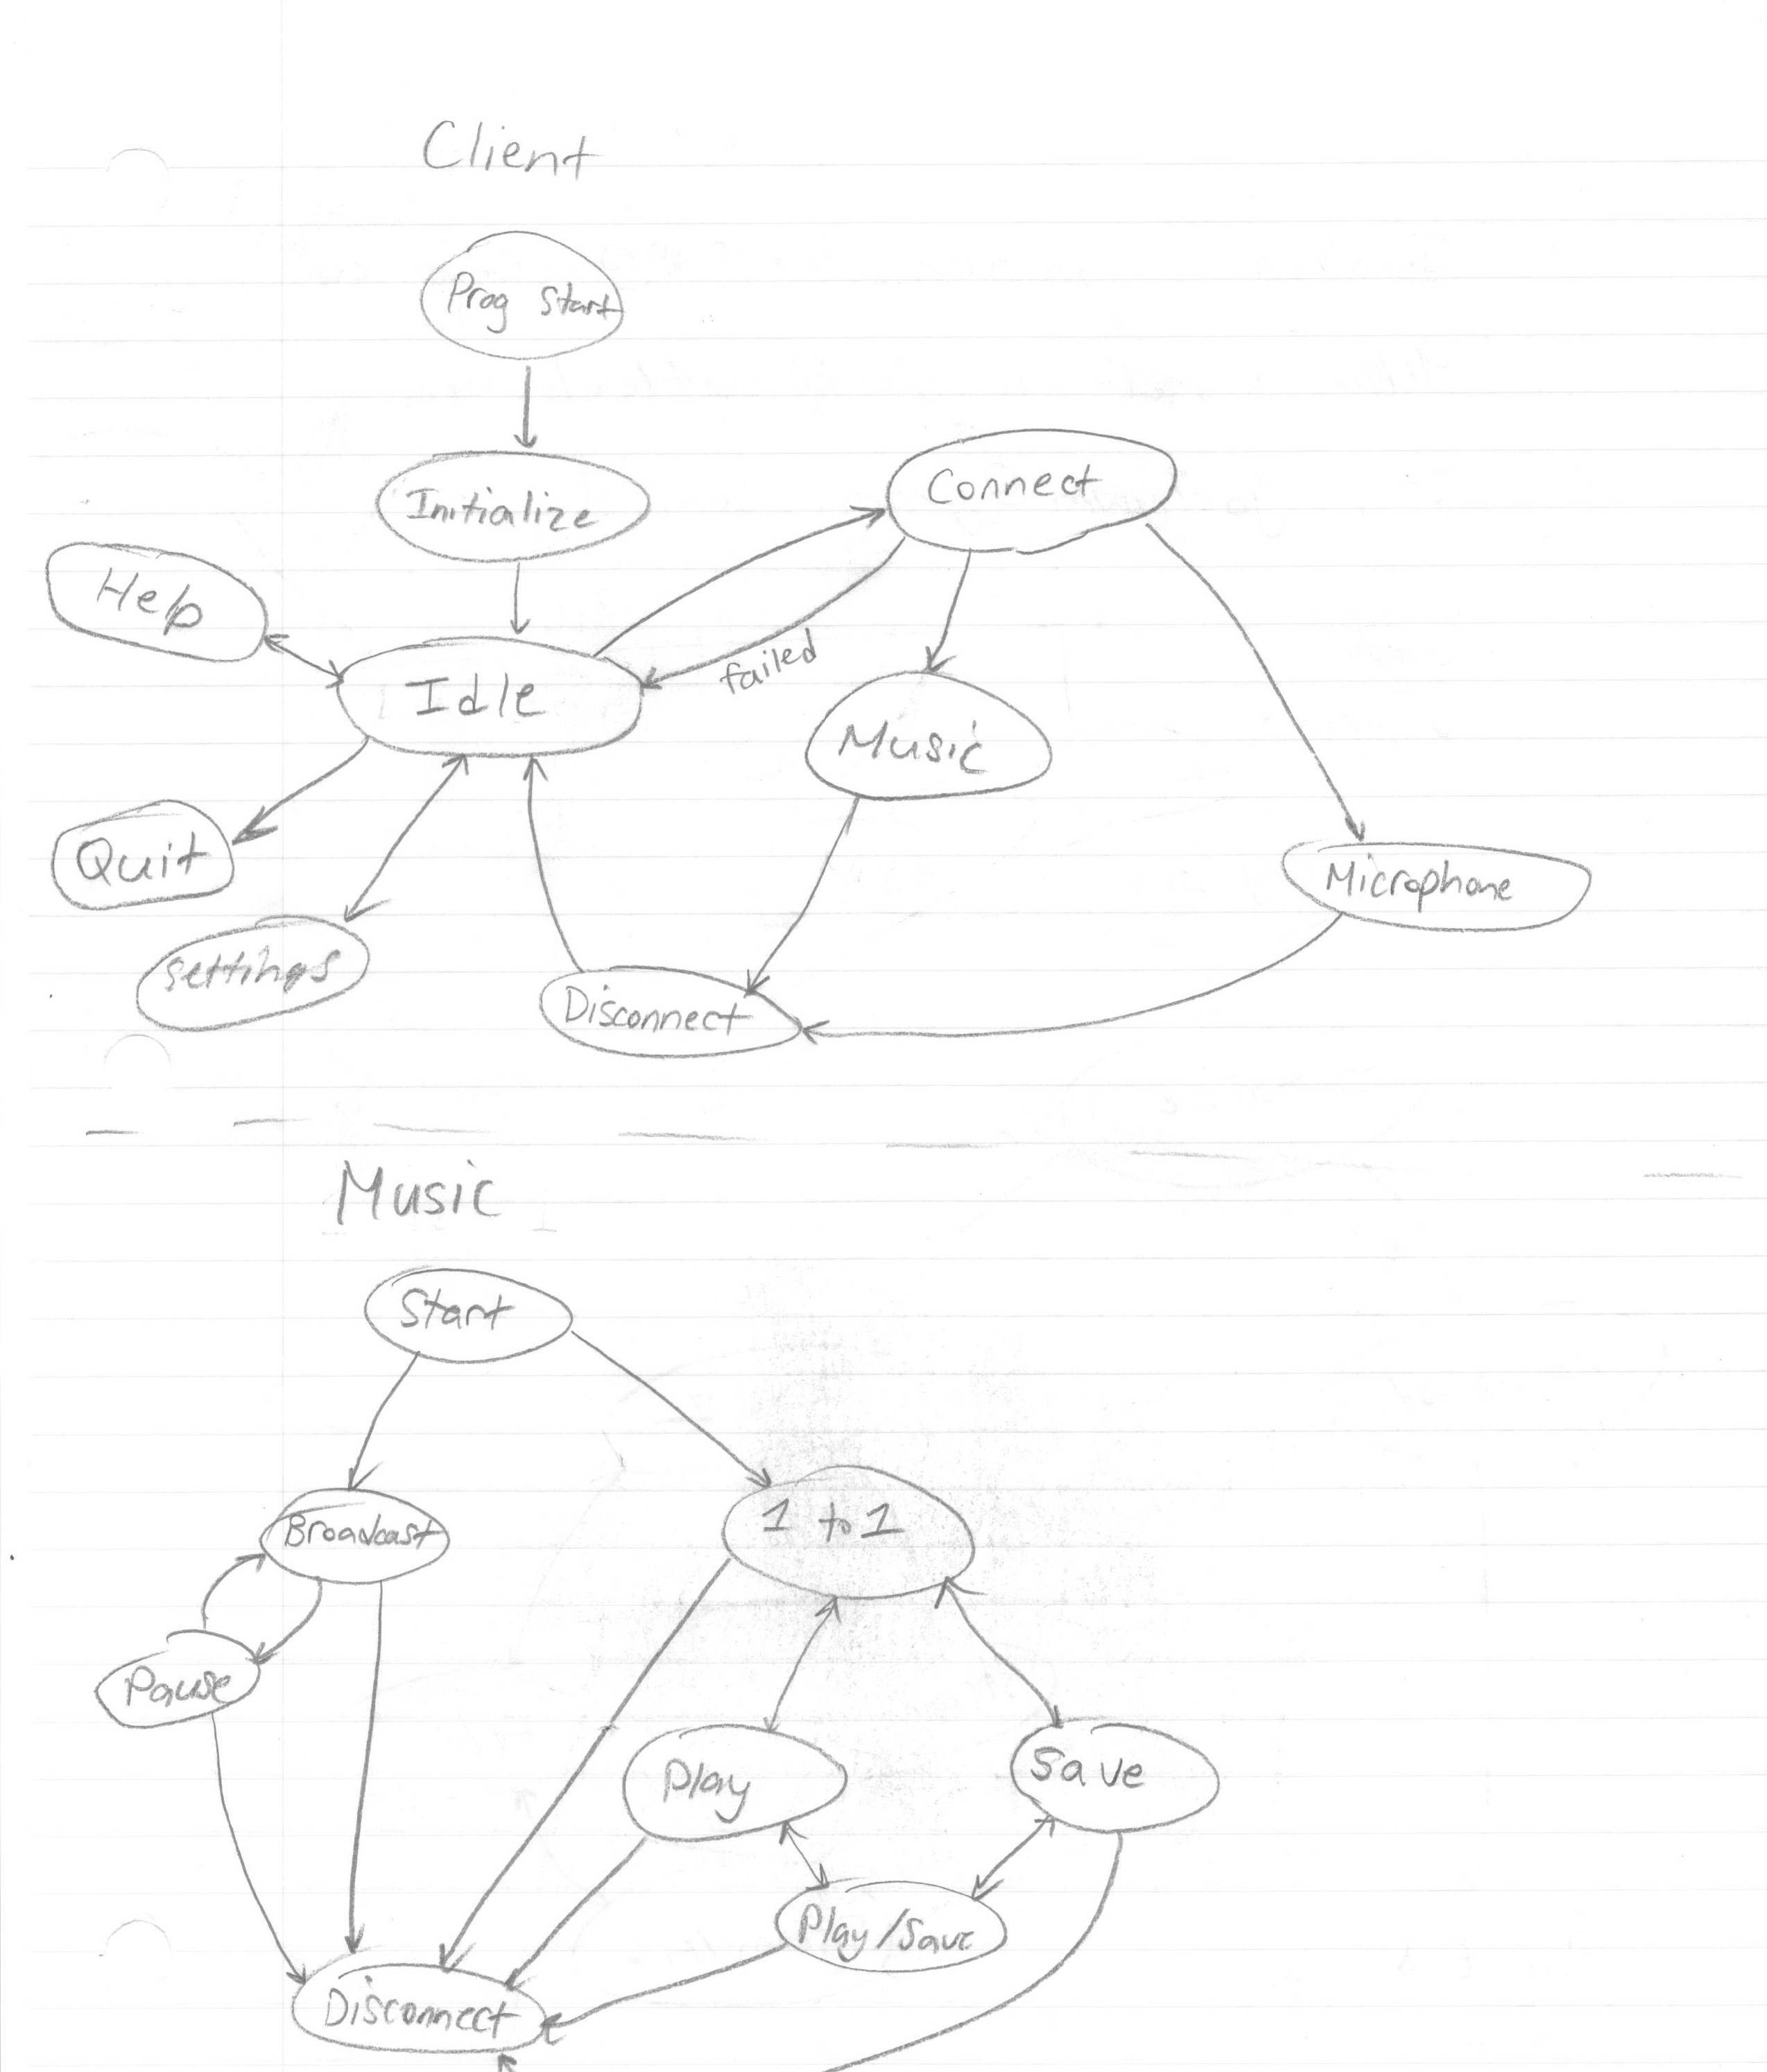 Client
Prog Start
Initialize
Connect
Help
Idle
failed
Music
Quit
Microphone
settings
Disconnect
Music
Start
Broadcast
1 to 1
Pause
Play
Save
Play/Save
Disconnect